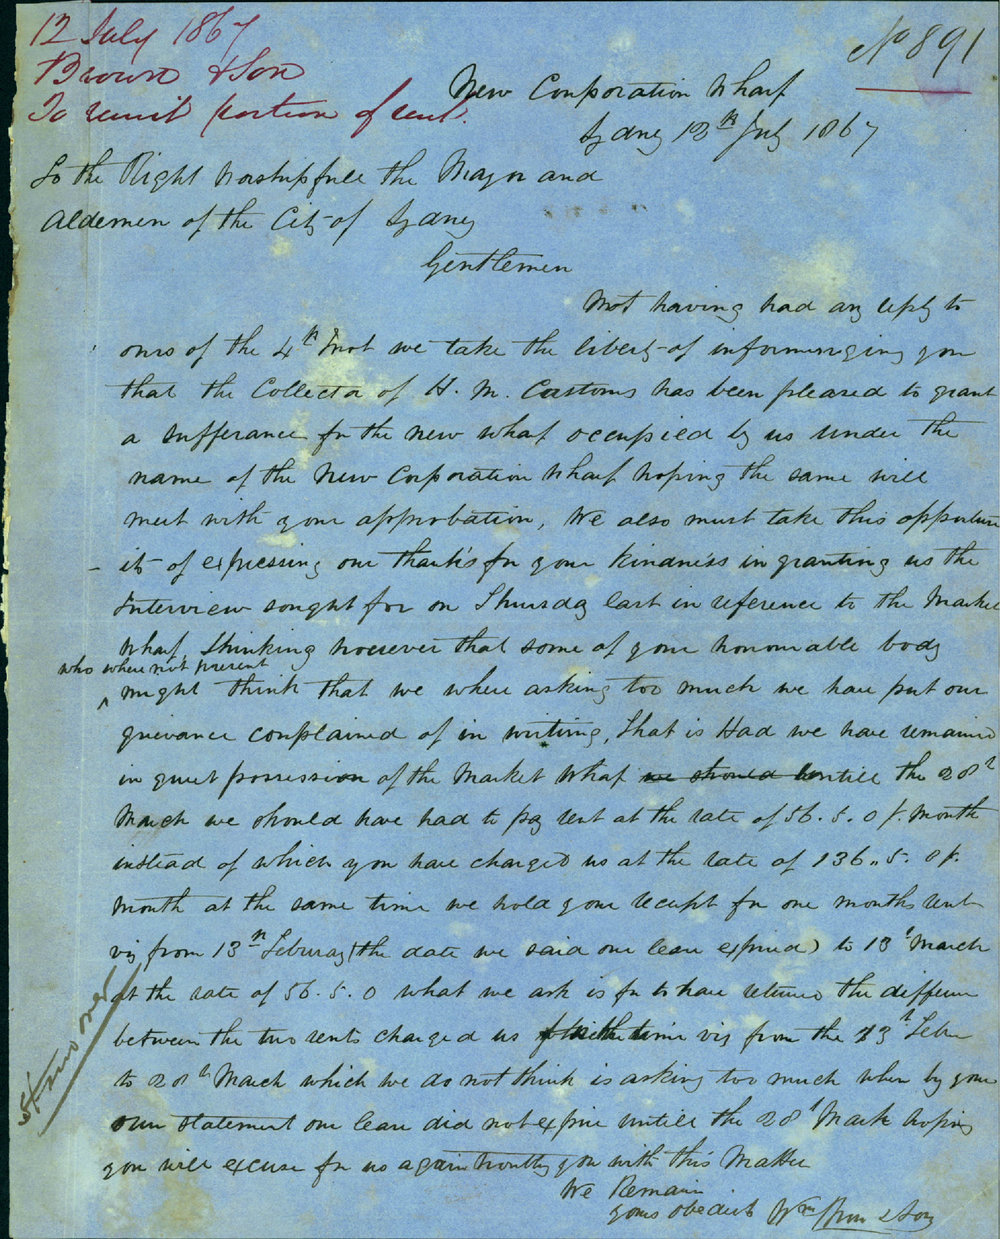 12 July 1867
Brown & Son
To remit portion of rent.
No 891
New Corporation Wharf
Sydney 12th July 1867
To the Right Worshipfull the Mayor and
Aldermen of the City of Sydney
Gentlemen
Not having had any reply to
ours of the 4th Inst we take the liberty of informinging you
that the Collector of H. M. Customs has been pleased to grant
a sufferance for the new wharf occupied by us under the
name of the New Corporation Wharf hoping the same will
meet with your approbation, We also must take this opportun
ity of expressing our thank's for your kindness in granting us the
Interview sought for on Thursday last in reference to the Market
Wharf, thinking however that some of your honourable body
who where not present
might think that we where asking too much we have put our
grievance complained of in writing, that is Had we have remained
in quiet possession of the Market Wharf we should untill the 28th
March we should have had to pay rent at the rate of 56.5.0 p. Month
instead of which you have charged us at the rate of 136.5.0 p.
Month at the same time we hold your receipt for one months rent
viz from 13th Feburay (the date we said our lease expired) to 13th March
at the rate of 56.5.0 what we ask is for to have returned the differen
between the two rents charged us time viz from the 13th Febu
to 28th March which we do not think is asking too much when by your
own statement our lease did not expire untill the 28th March hoping
you will excuse for us again you with this Matter
We Remain
yours obedient Wm Brown & Son
turn over